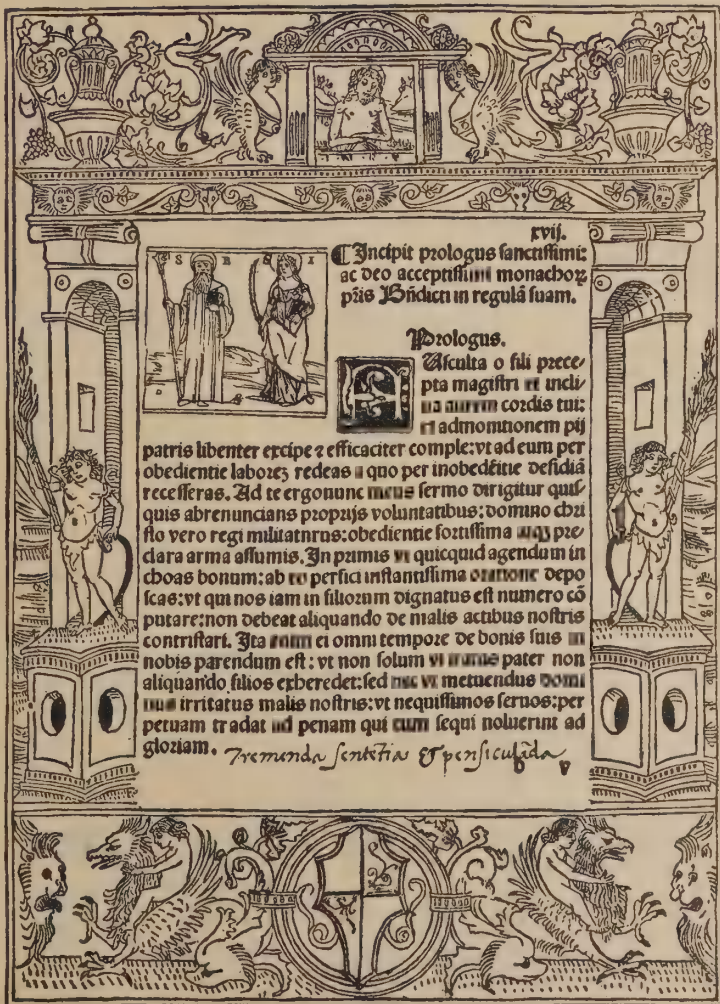 xvij.
¶ Incipit prologus ſanctiſſimi:
ac deo acceptiſſimi monachoꝝ
pr̄is Bn̄dicti in regulā ſuam.
Prologus.
AUſculta o fili prece/
pta magiſtri incli
aurem cordis tui:
admonitionem pij
patris libenter excipe ⁊ efficaciter comple: vt ad eum per
obedientie laboreʒ redeas a quo per inobedētie deſidiā
receſſeras. Ad te ergo nunc meus ſermo dirigitur quiſ/
quis abrenuncians proprijs voluntatibus: domino chri
ſto vero regi militatnrus: obedientie fortiſſima pre/
clara arma aſſumis. In primis vt quicquid agendum in
choas bonum: ab perfici inſtantiſſima oratione depo
ſcas: vt qui nos iam in filiorum dignatus eſt numero cō
putare: non debeat aliquando de malis actibus noſtris
contriſtari. Ita enim ei omni tempore de bonis ſuis in
nobis parendum eſt: vt non ſolum pater non
aliquando filios exheredet: ſed metuendus domi
irritatus malis noſtris: vt nequiſſimos ſeruos: per
petuam tradat ad penam qui ſequi noluerint ad
gloriam. Tremenda ſentētia & penſiculāda
v